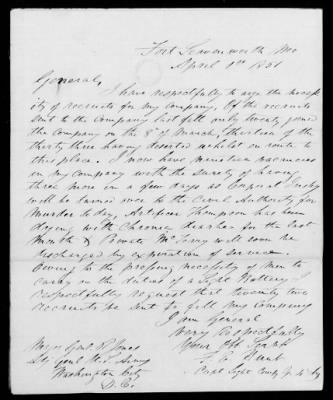 Fort Leavenworth Mo
April 1st 1851
General,
I have respectfully to urge the necess
ity of recruits for my Company. Of the recruits
sent to the Company last fall only twenty joined
the Company on the 8th of March, thirteen of the
thirty three having deserted whilst en route to
this place. I now have nineteen vacancies
in my Company with the surety of having
three more in a few days as Corporal
will be turned over to the Civil Authority for
Murder to day, Artificer Thompson has been
dying with Chronic diarhea for the last
Month & Private will soon be
discharged by expiration of service.
Owing to the pressing necessity of men to
carry on the duties of a Light Battery I
respectfully request that twenty two
recruits be sent to fill my Company
I am General
Very Respectfully
Your Obt Servt
F. E. Hunt
Capt Light Comp 4 Arty
Major Genl R Jones
Adt Genl U.S. Army
Washington City
D.C.